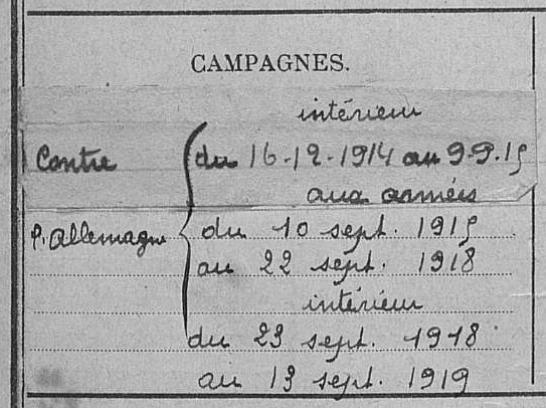 CAMPAGNES.
intérieur
Contre du 16-12-1914 au 9-9-15
aux armées
l'allemagne du 10 sept. 1915
au 22 sept. 1918
intérieur
du 23 sept. 1918
au 13 sept. 1919